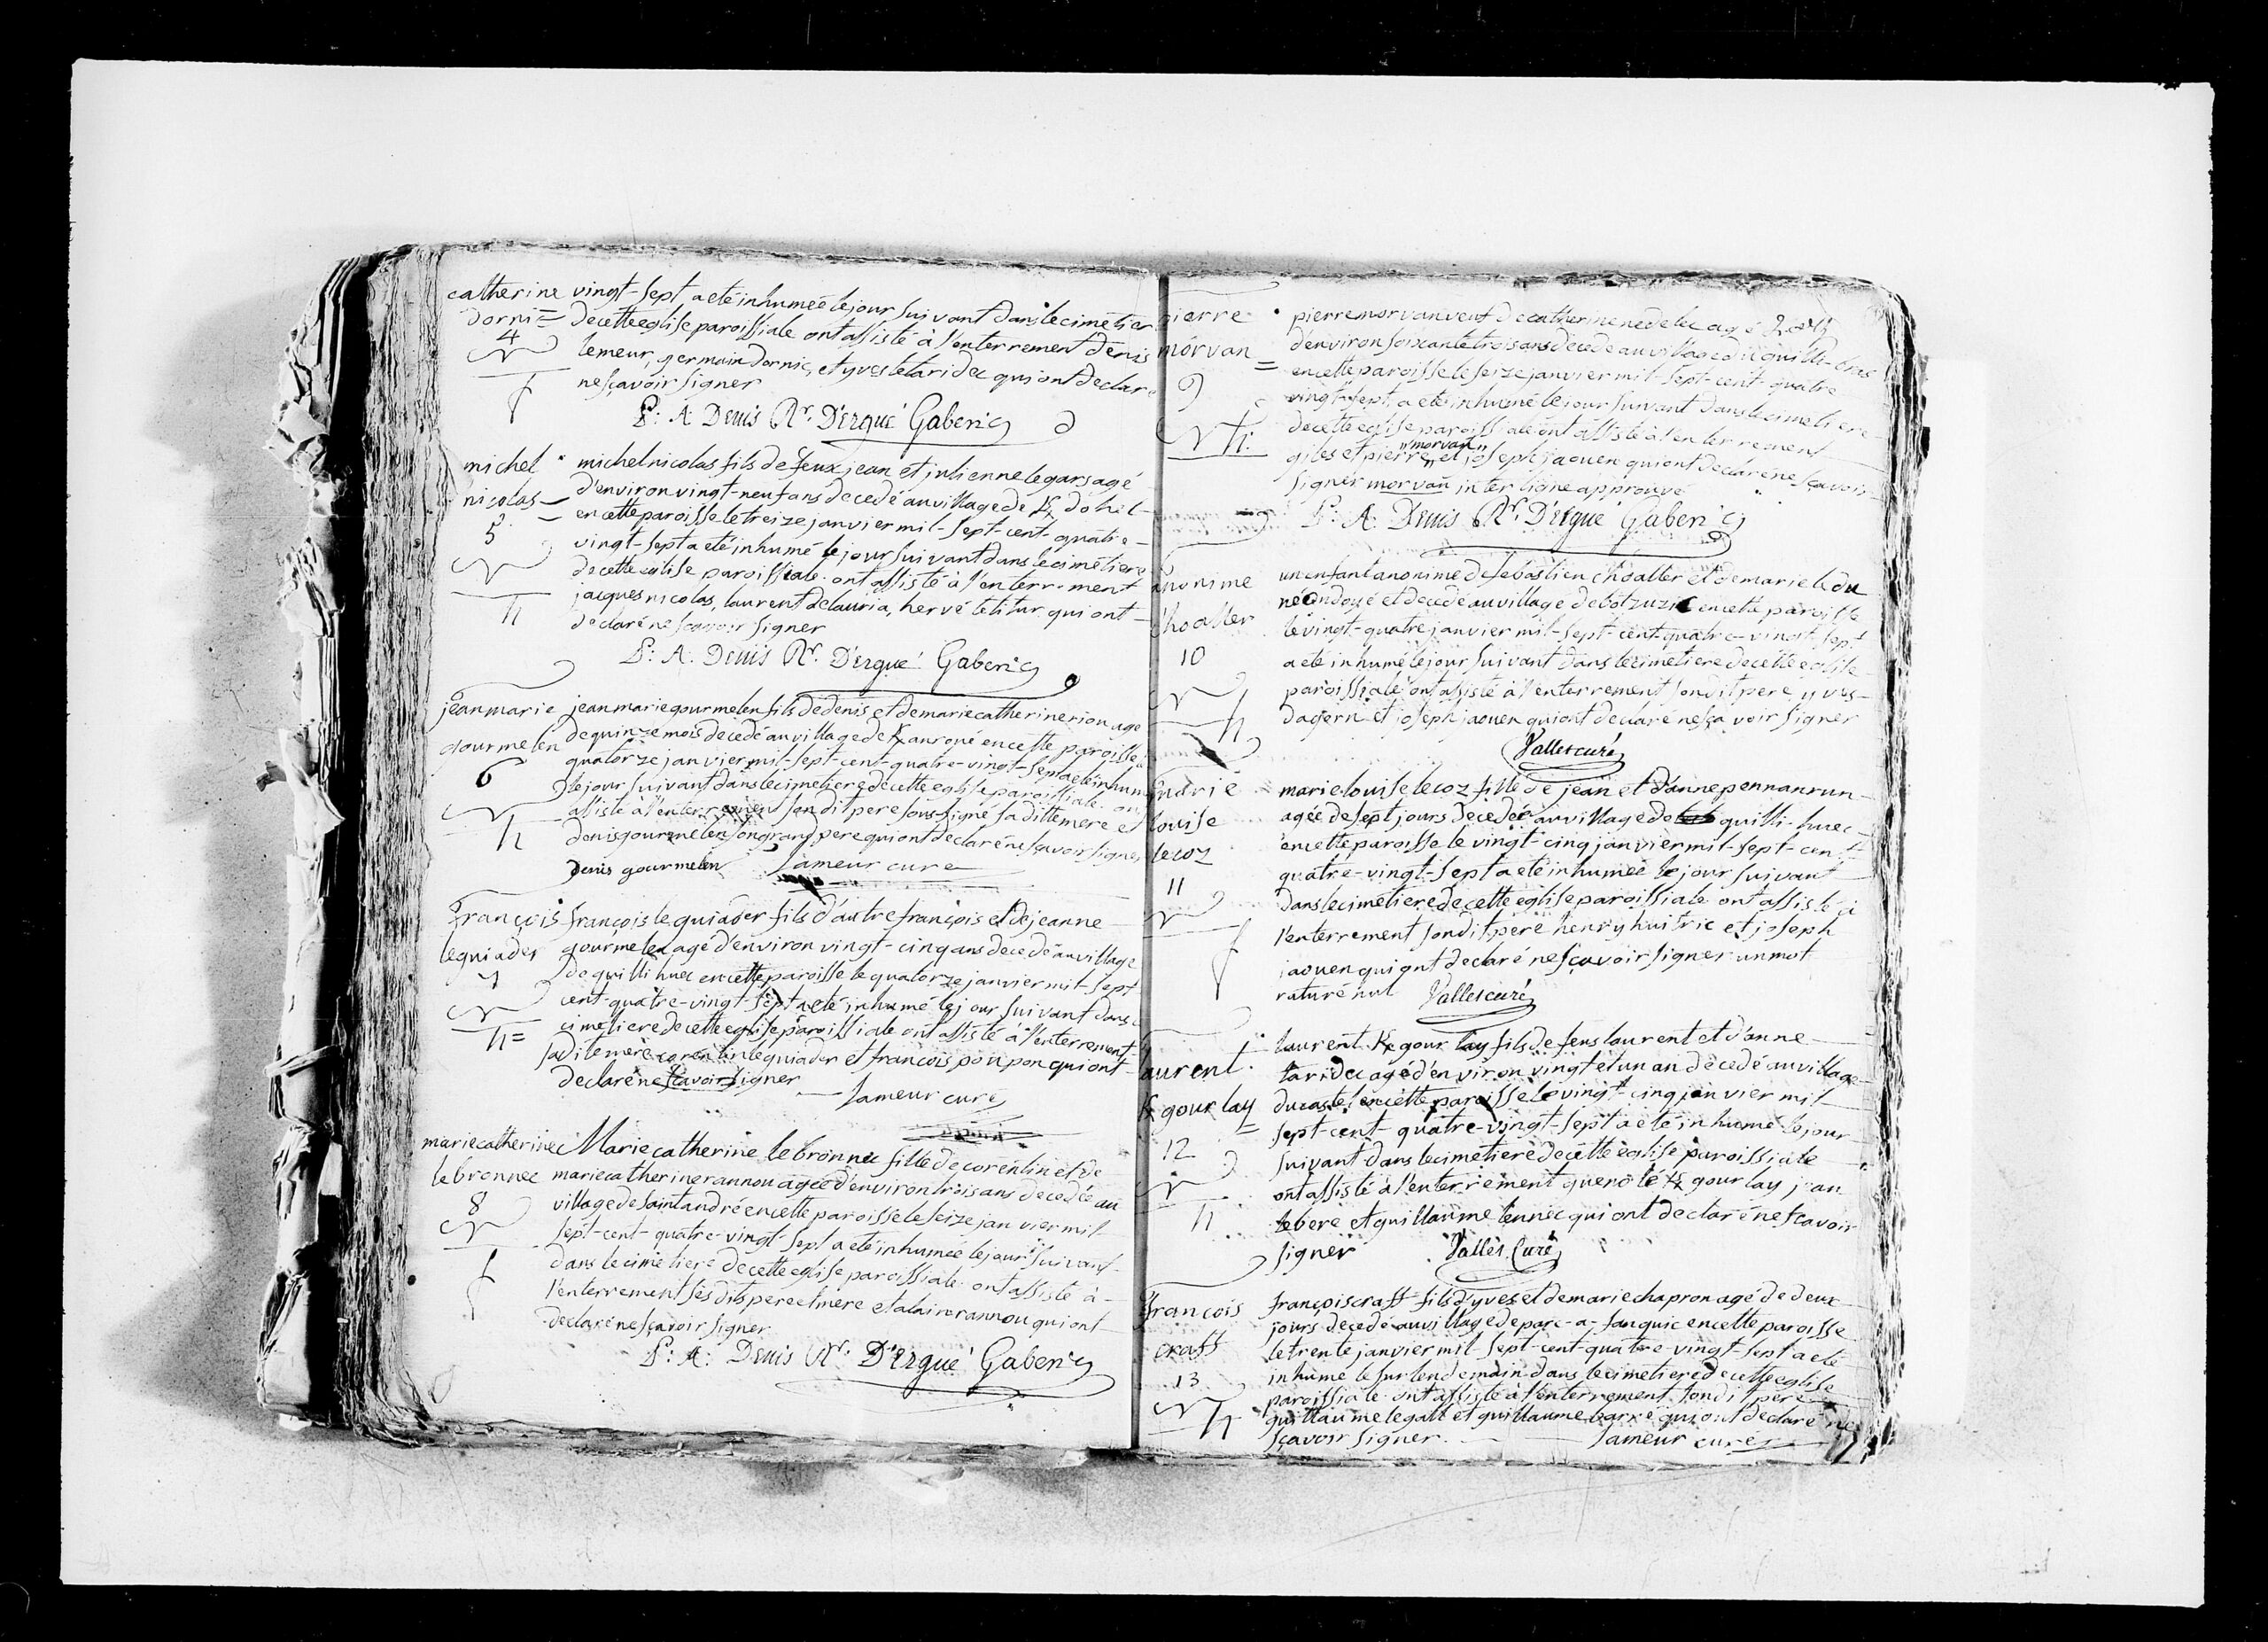 catherine vingt-sept a eté inhumeé le jour suivant dans le cimetier
dornic = de cette eglise paroissiale ont assisté à l'enterrement denis
4 lemeur, germain dornic, et yves le taridec qui ont declaré
ne sçavoir signer
P: A: Denis Rr. D'Ergué Gaberic
michel michel nicolas fils de feux jean et julienne le gars agé
nicolas d'environ vingt-neuf ans decedé au village de K dohel
en cette paroisse le treize janvier mil-sept-cent-quatre-
5 vingt-sept a eté inhumé le jour suivant dans le cimetiere
de cette eglise paroissiale ont assisté à l'enterrement
h jacques nicolas, laurent delauria, hervé letitur qui ont
declaré ne sçavoir signer
P: A: Denis Rr. D'ergué Gaberic
jean marie jean marie gourmelen fils de denis et de marie catherine rion agé
gourmelen de quinze mois decedé au village de K anroué en cette paroisse
quatorze janvier mil-sept-cent-quatre-vingt-sept a eté inhum
6 le jour suivant dans le cimetiere de cette eglise paroissiale on
assisté à l'enterrement son dit pere sous-signé sa ditte mere et
h denis gourmelen son grand pere qui ont declaré ne sçavoir signer
denis gourmelen Lameur curé
françois françois le quiader fils d'autre françois et de jeanne
le quiader gourmelen agé d'environ vingt-cinq ans decedé au village
7 de quillihuec en cette paroisse le quatorze janvier mil-sept
cent-quatre-vingt-sept a eté inhumé le jour suivant dans
h = cimetiere de cette eglise paroissiale ont assisté à l'enterrement
sa dite mere corentin le quiader et françois ponpon qui ont
declaré ne sçavoir signer
Lameur curé
marie catherine Marie catherine le bronnec fille de corentin et de
le bronnec marie catherine rannou ageé d'environ trois ans decedeé au
8 village de saint andré en cette paroisse le seize janvier mil
sept-cent-quatre-vingt-sept a eté inhumeé le jour suivant
f dans le cimetiere de cette eglise paroissiale ont assisté à
l'enterrement ses dits pere et mere et alain rannou qui ont
declaré ne sçavoir signer
P: A: Denis Rr. D'Ergué Gaberic
pierre pierre morvan veuf de catherine nedelec agé
morvan = d'environ soixante trois ans decedé au village du quilli-bras
en cette paroisse le seize janvier mil-sept-cent-quatre
9 vingt-sept a eté inhumé le jour suivant dans le cimetiere
de cette eglise paroissiale ont assisté à l'enterrement
h: giles et pierre "morvan" et joseph jaouen qui ont declaré ne sçavoir
signer morvan interligne approuvé
P: A: Denis Rr. D'Ergué Gaberic
anonime un enfant anonime de sebastien choatter et de marie le du
choatter né ondoyé et decedé au village de botzuzic en cette paroisse
le vingt-quatre janvier mil-sept-cent-quatre-vingt-sept
10 a eté inhumé le jour suivant dans le cimetiere de cette eglise
paroissiale ont assisté à l'enterrement son dit pere yves
h dagern et joseph jaouen qui ont declaré ne sçavoir signer
Vallescuré
marie marie louise lecoz fille de jean et d'anne pennanrun
louise ageé de sept jours decedeé au village de quilli-huec
lecoz en cette paroisse le vingt-cinq janvier mil-sept-cent
11 quatre-vingt-sept a eté inhumeé le jour suivant
dans le cimetiere de cette eglise paroissiale ont assisté à
f l'enterrement son dit pere henry huitric et joseph
jaouen qui ont declaré ne sçavoir signer un mot
raturé nul Vallescuré
laurent laurent K gourlay fils de feus laurent et d'anne
taridec agé d'environ vingt et un an decedé au village
K gourlay du castel en cette paroisse le vingt-cinq janvier mil
sept-cent-quatre-vingt-sept a eté inhumé le jour
12 suivant dans le cimetiere de cette eglise paroissiale
ont assisté à l'enterrement guenolé K gourlay jean
h le bere et guillaume lennic qui ont declaré ne sçavoir
signer Vallès Curé
françois françois craff fils d'yves et de marie chapron agé de deux
craff jours decedé au village de parc-a-fanquic en cette paroisse
le trente janvier mil-sept-cent-quatre-vingt-sept a eté
13 inhumé le surlendemain dans le cimetiere de cette eglise
paroissiale ont assisté à l'enterrement son dit pere
h guillaume le gall et guillaume barré qui ont declaré ne
sçavoir signer. Lameur curé